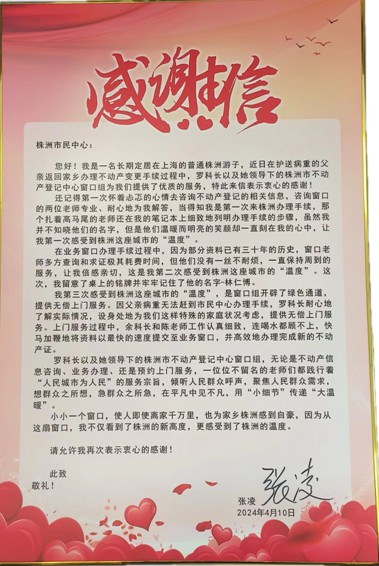 感谢信
株洲市民中心：
您好！我是一名长期定居在上海的普通株洲游子，近日在护送病重的父
亲返回家乡办理不动产变更手续过程中，罗科长以及她领导下的株洲市不动
产登记中心窗口组为我们提供了优质的服务，特此来信表示衷心的感谢！
还记得第一次怀着忐忑的心情去咨询不动产登记的相关信息，咨询窗口
的两位老师专业、耐心地为我解答，当得知我是第一次来株洲办理手续，那
个扎着高马尾的老师还在我的笔记本上细致地列明办理手续的步骤，虽然我
并不知晓他们的名字，但是他们温暖而明亮的笑颜却一直刻在我的心中，让
我第一次感受到株洲这座城市的“温度”。
在业务窗口办理手续过程中，因为部分资料已有三十年的历史，窗口老
师多方查询和求证极其耗费时间，但他们没有一丝不耐烦，一直保持周到的
服务，让我倍感亲切，这是我第二次感受到株洲这座城市的“温度”。这
次，我留意了桌上的铭牌并牢牢记住了他的名字-林仁博。
我第三次感受到株洲这座城市的“温度”，是窗口组开辟了绿色通道，
提供无偿上门服务。因父亲病重无法赶到市民中心办理手续，罗科长耐心地
了解实际情况，设身处地为我们这样特殊的家庭状况考虑，提供无偿上门服
务。上门服务过程中，余科长和陈老师工作认真细致，连喝水都顾不上，快
马加鞭地将资料以最快的速度提交至业务窗口，并高效地办理完成新的不动
产证。
罗科长以及她领导下的株洲市不动产登记中心窗口组，无论是不动产信
息咨询、业务办理、还是预约上门服务，一位位不留名的老师们都践行着
“人民城市为人民”的服务宗旨，倾听人民群众呼声，聚焦人民群众需求，
想群众之所想，急群众之所急，在平凡中见不凡，用“小细节”传递“大温
暖”。
小小一个窗口，使人即使离家千万里，也为家乡株洲感到自豪，因为从
这扇窗口，我不仅看到了株洲的新高度，更感受到了株洲的温度。
请允许我再次表示衷心的感谢！
此致
敬礼！
张凌
张凌
2024年4月10日